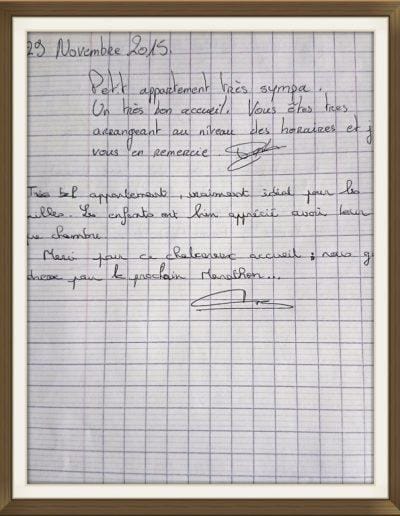 29 Novembre 2015.
Petit appartement très sympa.
Un très bon accueil. Vous êtes très
arrangeant au niveau des horaires et j
vous en remercie.
Très bel appartement, vraiment idéal pour les
illes. Les enfants ont bien apprécié avoir leur
pe chambre.
Merci pour ce chaleureux accueil ; nous g
dresse pour le prochain Marathon...